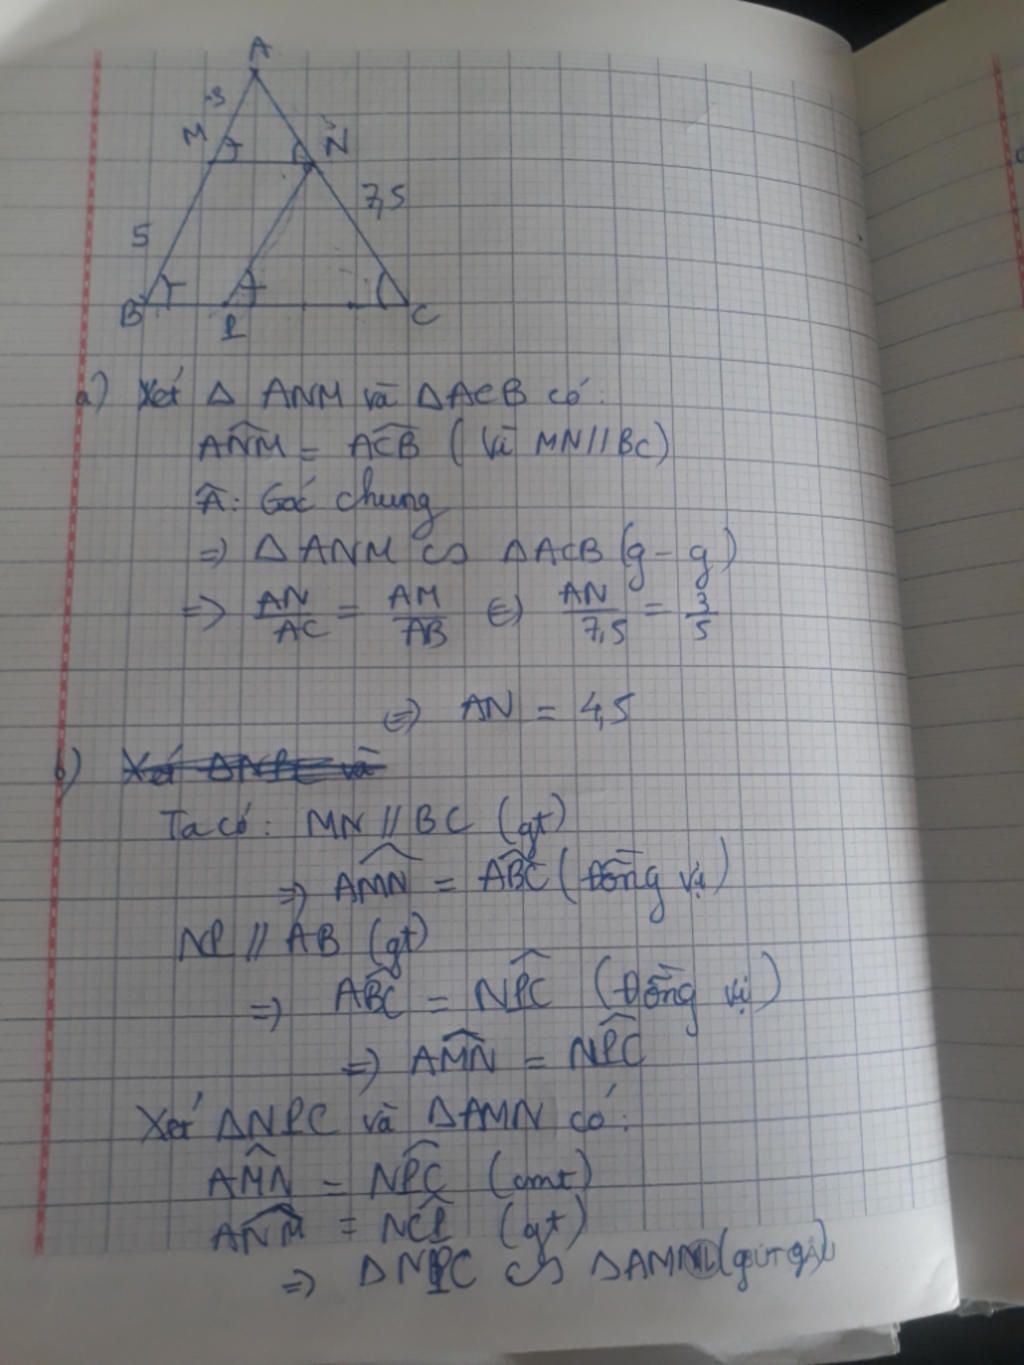 A
3
M
N
7,5
5
B
P
C
a) Xét Δ ANM và ΔACB có:
ANM̂ = ACB̂ (Vì MN//BC)
Â: Góc chung
=> ΔANM ∽ ΔACB (g-g)
=> AN/AC = AM/AB <=> AN/7,5 = 3/5
<=> AN = 4,5
b) Xét ΔNPC và
Ta có: MN // BC (gt)
=> AMN̂ = ABĈ (Đồng vị)
NP // AB (gt)
=> ABĈ = NPĈ (Đồng vị)
=> AMN̂ = NPĈ
Xét ΔNPC và ΔAMN có:
AMN̂ = NPĈ (cmt)
ANM̂ = NCP̂ (gt)
=> ΔNPC ∽ ΔAMN